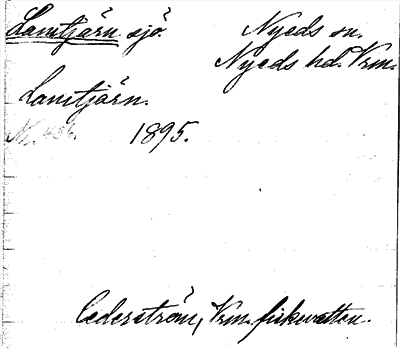 Lamtjärn sjö. Nyeds sn.
Nyeds hd. Vrm.
Lamtjärn.
1895.
Cederström, Vrm. fiskvatten.